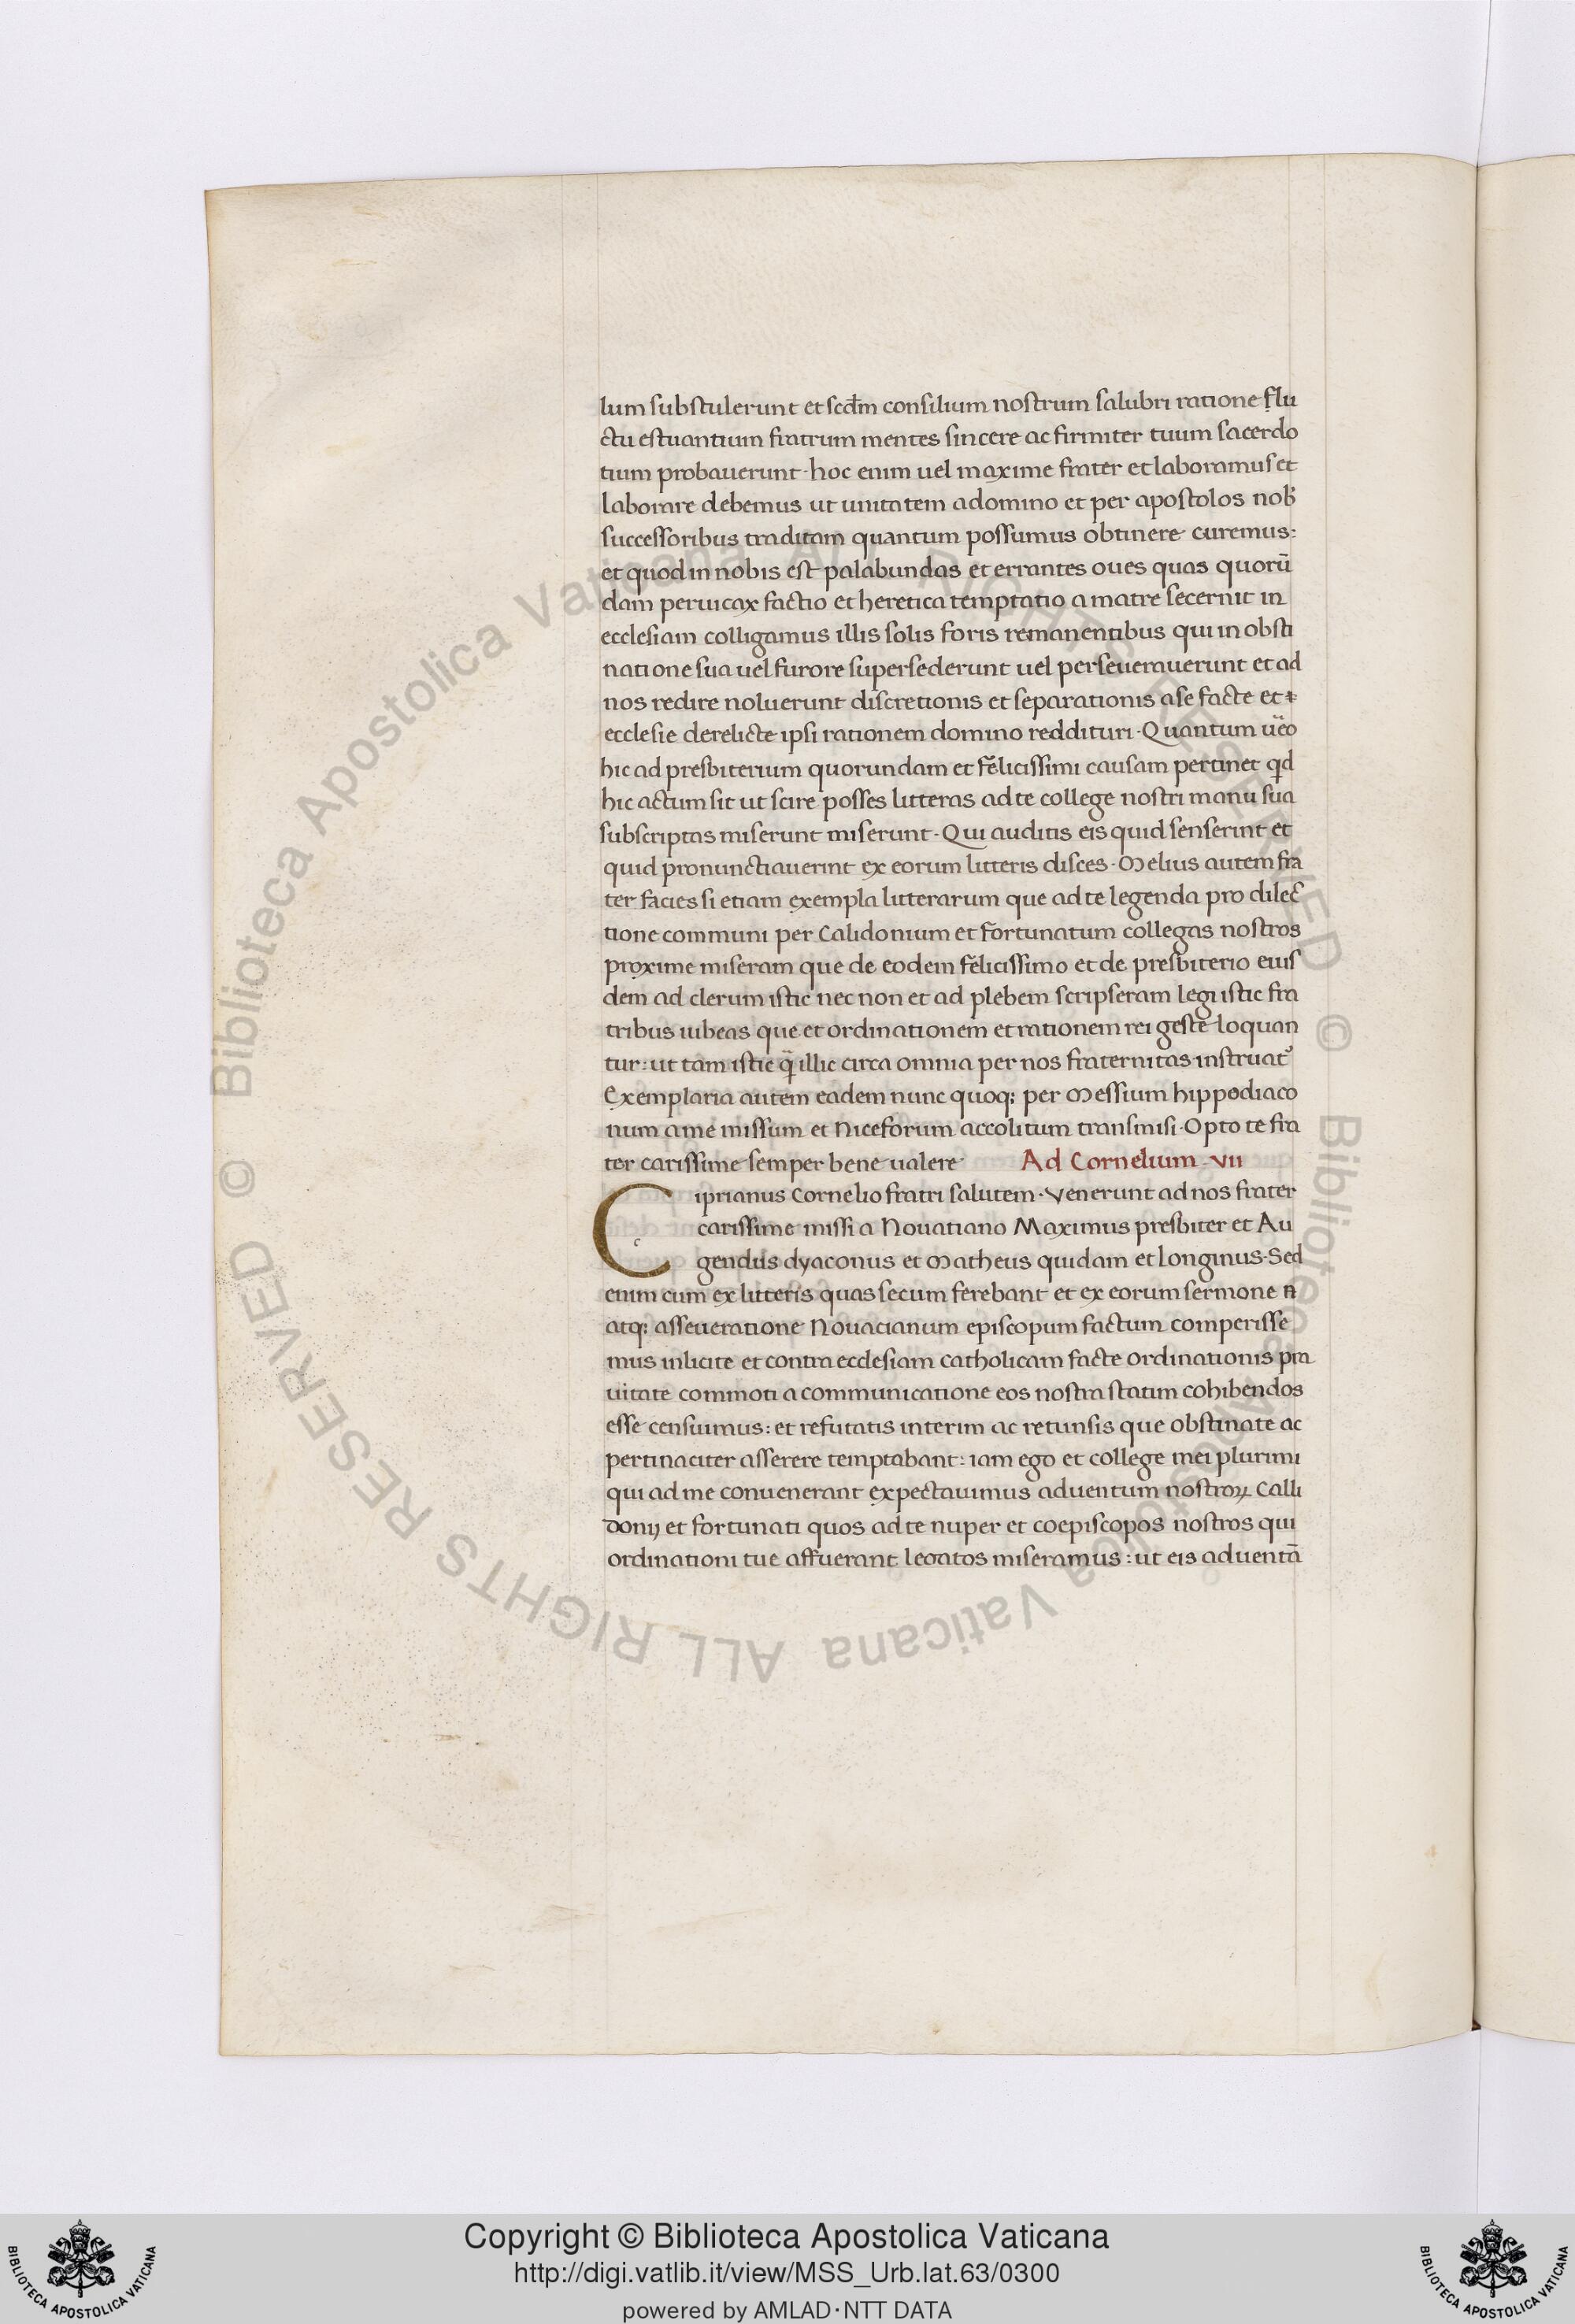 lum substulerunt et scdm̄ consilium nostrum salubri ratione flu
ctu estuantium fratrum mentes sincere ac firmiter tuum sacerdo
tium probauerunt· hoc enim uel maxime frater et laboramus et
laborare debemus ut unitatem adomino et per apostolos nob̄
successoribus traditam quantum possumus obtinere curemus:
et quod in nobis est palabundas et errantes oues quas quorū
dam peruicax factio et heretica temptatio a matre secernit in
ecclesiam colligamus illis solis foris remanentibus qui in obsti
natione sua uel furore supersederunt uel perseuerauerunt et ad
nos redire noluerunt discretionis et separationis ase facte et
ecclesie derelicte ipsi rationem domino reddituri· Quantum ūeo
hic ad presbiterium quorundam et felicissimi causam pertinet qd
hic actum sit ut scire posses litteras ad te college nostri manu sua
subscriptas miserunt miserunt· Qui auditis eis quid senserint et
quid pronunctiauerint ex eorum litteris disces· Melius autem fra
ter facies si etiam exempla litterarum que ad te legenda pro dilec
tione communi per Calidonium et fortunatum collegas nostros
proxime miseram que de eodem felicissimo et de presbiterio eius
dem ad clerum istic nec non et ad plebem scripseram legi istic fra
tribus iubeas que et ordinationem et rationem rei geste loquan
tur: ut tam istic q̄ illic circa omnia per nos fraternitas instruat᷒
Exemplaria autem eadem nunc quoq; per Messium hippodiaco
num ame missum et Niceforum accolitum transmisi· Opto te fra
ter carissime semper bene ualere Ad Cornelium · VII
Ciprianus Cornelio fratri salutem· Venerunt ad nos frater
carissime missi a Nouatiano Maximus presbiter et Au
gendus dyaconus et Matheus quidam et Longinus· Sed
enim cum ex litteris quas secum ferebant et ex eorum sermone
atq; asseueratione Nouacianum episcopum factum comperisse
mus inlicite et contra ecclesiam catholicam facte ordinationis pra
uitate commoti a communicatione eos nostra statim cohibendos
esse censuimus: et refutatis interim ac retunsis que obstinate ac
pertinaciter asserere temptabant: iam ego et college mei plurimi
qui ad me conuenerant expectauimus aduentum nostroꝝ Calli
donij et fortunati quos ad te nuper et coepiscopos nostros qui
ordinationi tue affuerant legatos miseramus: ut eis aduentā
© Biblioteca Apostolica Vaticana ALL RIGHTS RESERVED © Biblioteca Apostolica Vaticana ALL RIGHTS RESERVED
Copyright © Biblioteca Apostolica Vaticana
http://digi.vatlib.it/view/MSS_Urb.lat.63/0300
powered by AMLAD·NTT DATA
BIBLIOTECA APOSTOLICA VATICANA
BIBLIOTECA APOSTOLICA VATICANA